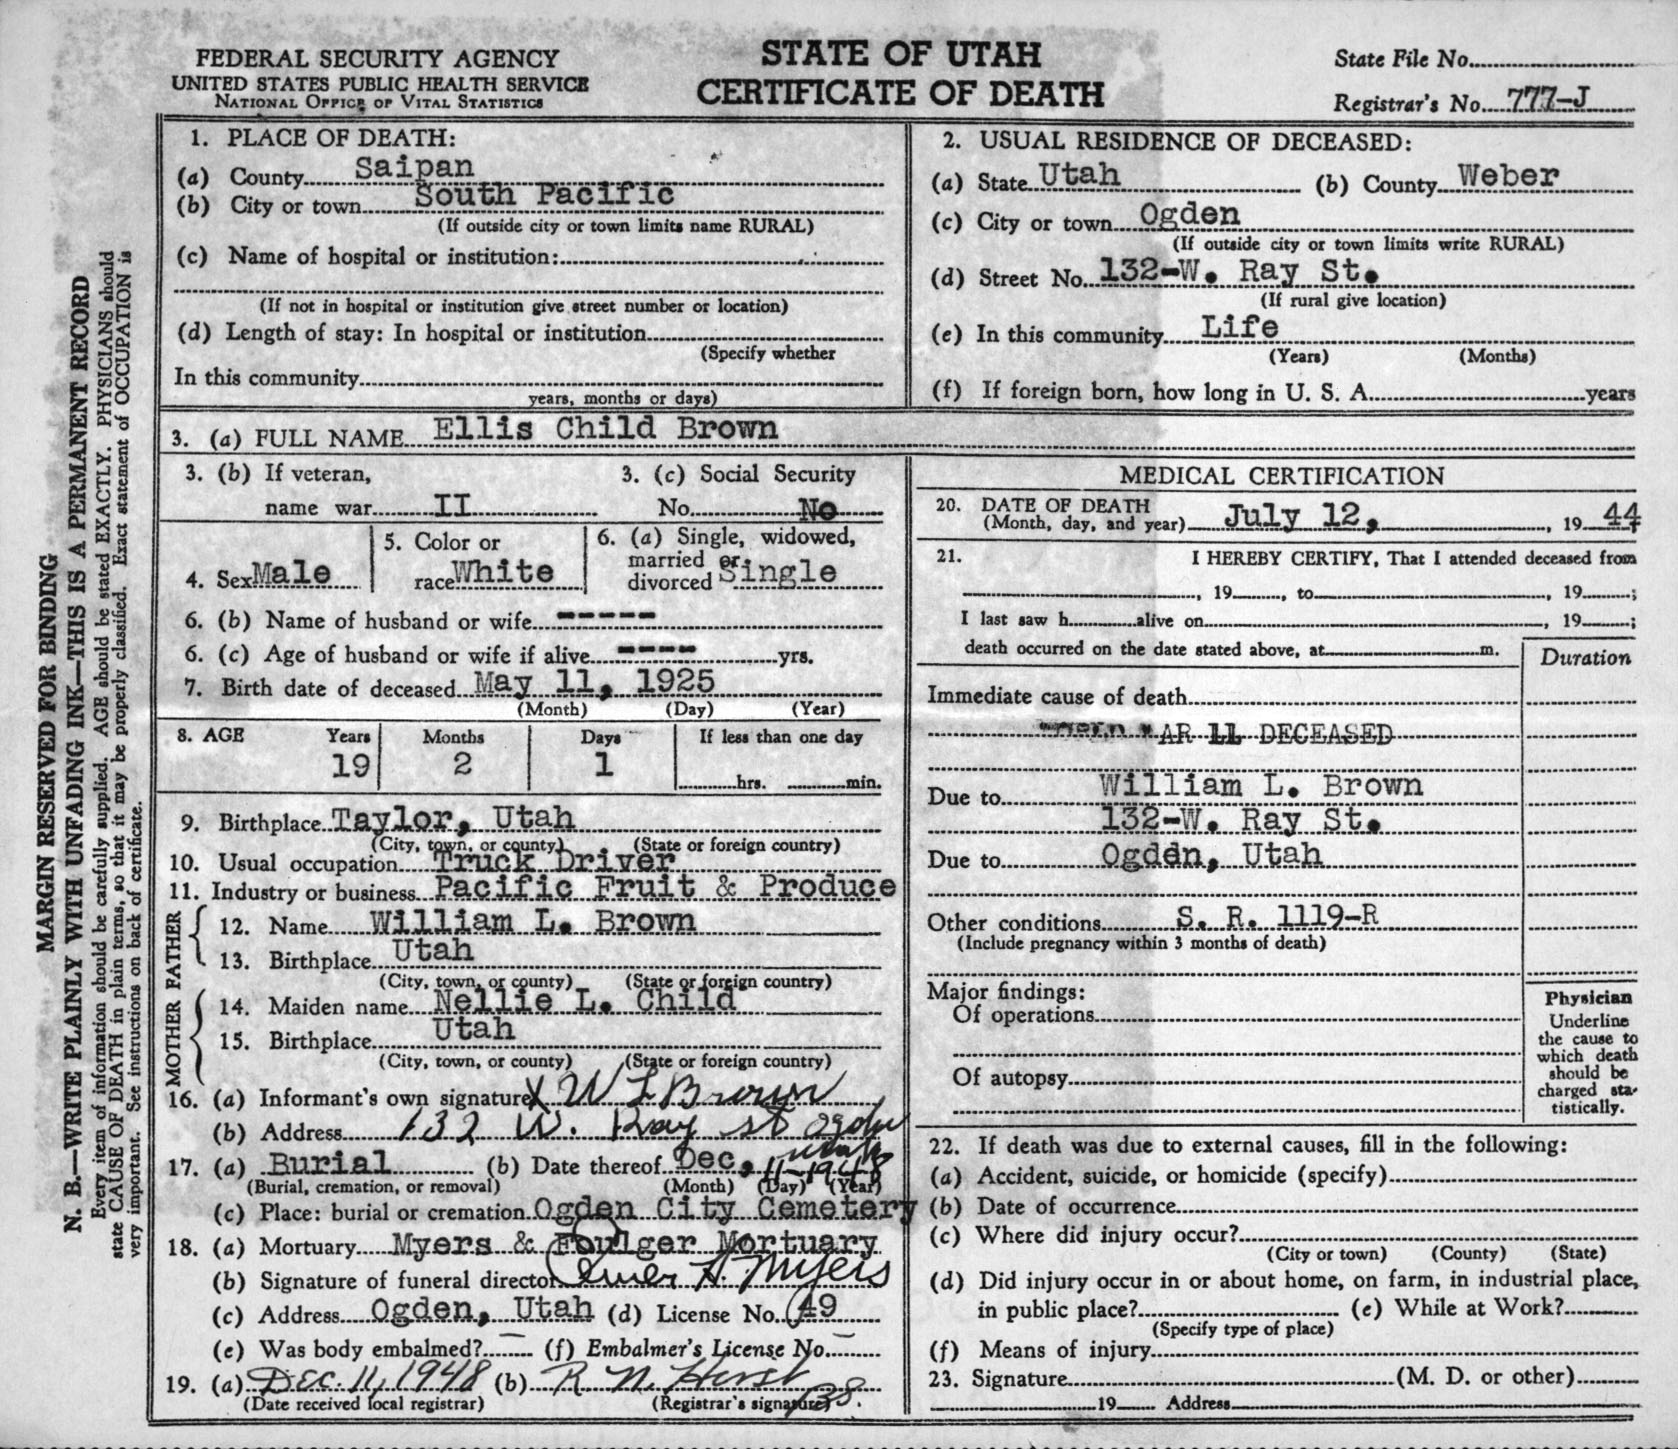 FEDERAL SECURITY AGENCY
UNITED STATES PUBLIC HEALTH SERVICE
NATIONAL OFFICE OF VITAL STATISTICS
STATE OF UTAH
CERTIFICATE OF DEATH
State File No.
Registrar's No. 777-J
MARGIN RESERVED FOR BINDING
N. B.—WRITE PLAINLY WITH UNFADING INK—THIS IS A PERMANENT RECORD
Every item of information should be carefully supplied. AGE should be stated EXACTLY. PHYSICIANS should
state CAUSE OF DEATH in plain terms, so that it may be properly classified. Exact statement of OCCUPATION is
very important. See instructions on back of certificate.
1. PLACE OF DEATH:
(a) County Saipan
(b) City or town South Pacific
(If outside city or town limits name RURAL)
(c) Name of hospital or institution:
(If not in hospital or institution give street number or location)
(d) Length of stay: In hospital or institution
(Specify whether
In this community
years, months or days)
2. USUAL RESIDENCE OF DECEASED:
(a) State Utah (b) County Weber
(c) City or town Ogden
(If outside city or town limits write RURAL)
(d) Street No. 132-W. Ray St.
(If rural give location)
(e) In this community Life
(Years) (Months)
(f) If foreign born, how long in U. S. A. years
3. (a) FULL NAME Ellis Child Brown
3. (b) If veteran,
name war II
3. (c) Social Security
No. No
4. Sex Male
5. Color or
race White
6. (a) Single, widowed,
married or
divorced Single
6. (b) Name of husband or wife -----
6. (c) Age of husband or wife if alive ---- yrs.
7. Birth date of deceased May 11, 1925
(Month) (Day) (Year)
8. AGE Years Months Days If less than one day
19 2 1 hrs. min.
9. Birthplace Taylor, Utah
(City, town, or county) (State or foreign country)
10. Usual occupation Truck Driver
11. Industry or business Pacific Fruit & Produce
FATHER
12. Name William L. Brown
13. Birthplace Utah
(City, town, or county) (State or foreign country)
MOTHER
14. Maiden name Nellie L. Child
15. Birthplace Utah
(City, town, or county) (State or foreign country)
16. (a) Informant's own signature X W L Brown
(b) Address 132 W. Ray st Ogden
Utah
17. (a) Burial (b) Date thereof Dec, 11-1948
(Burial, cremation, or removal) (Month) (Day) (Year)
(c) Place: burial or cremation Ogden City Cemetery
18. (a) Mortuary Myers & Foulger Mortuary
(b) Signature of funeral director A. Myers
(c) Address Ogden, Utah (d) License No. 49
(e) Was body embalmed? — (f) Embalmer's License No. —
19. (a) Dec. 11, 1948 (b) R N. Hirst
(Date received local registrar) (Registrar's signature) 138.
MEDICAL CERTIFICATION
20. DATE OF DEATH
(Month, day, and year) July 12, , 19 44
21. I HEREBY CERTIFY, That I attended deceased from
, 19 , to , 19 ;
I last saw h alive on , 19 ;
death occurred on the date stated above, at m.
Duration
Immediate cause of death
WAR II DECEASED
Due to William L. Brown
132-W. Ray St.
Due to Ogden, Utah
Other conditions S. R. 1119-R
(Include pregnancy within 3 months of death)
Major findings:
Of operations
Of autopsy
Physician
Underline
the cause to
which death
should be
charged sta-
tistically.
22. If death was due to external causes, fill in the following:
(a) Accident, suicide, or homicide (specify)
(b) Date of occurrence
(c) Where did injury occur?
(City or town) (County) (State)
(d) Did injury occur in or about home, on farm, in industrial place,
in public place? (e) While at Work?
(Specify type of place)
(f) Means of injury
23. Signature (M. D. or other)
19 Address